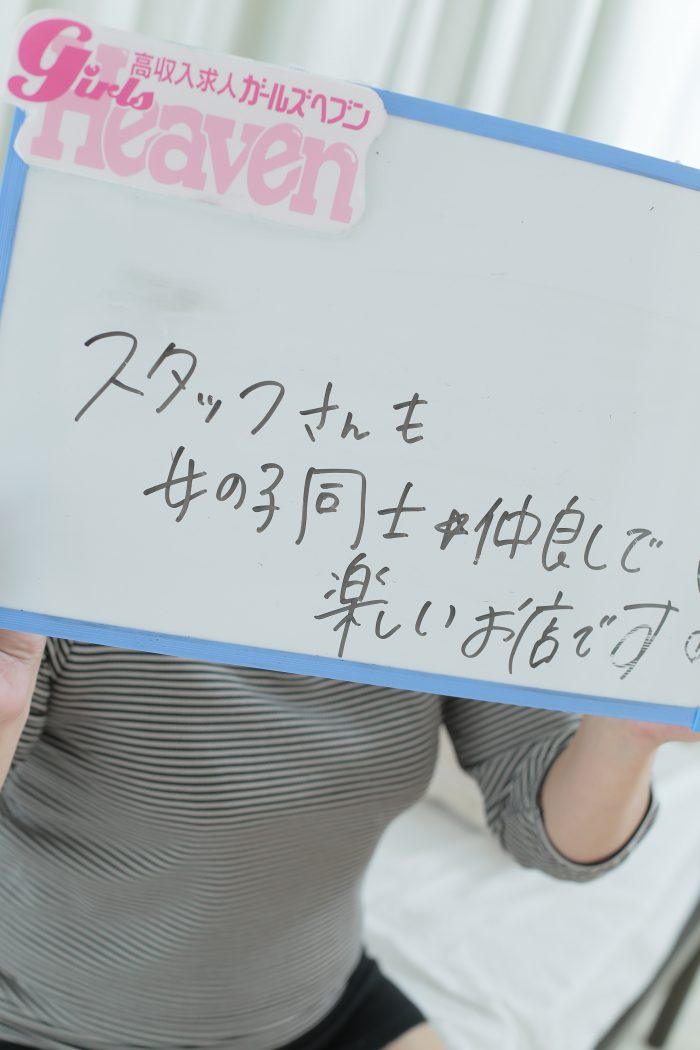 高収入求人ガールズヘブン
Girls
Heaven
スタッフさんも
女の子同士仲良しで
楽しいお店です